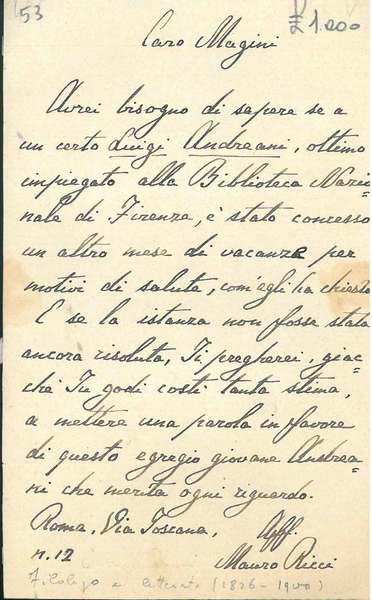 53
£ 1.000
Caro Magini
Avrei bisogno di sapere se a
un certo Luigi Andreani, ottimo
impiegato alla Biblioteca Nazio=
nale di Firenze, è stato concesso
un altro mese di vacanze per
motivi di salute, com'egli ha chiesto
E se la istanza non fosse stata
ancora risoluta, Ti pregherei, giac=
chè Tu godi costì tanta stima,
a mettere una parola in favore
di questo egregio giovane Andrea=
ni che merita ogni riguardo.
Roma, Via Toscana, Aff.
n. 12 Mauro Ricci
Filologo e letterato (1826-1900)